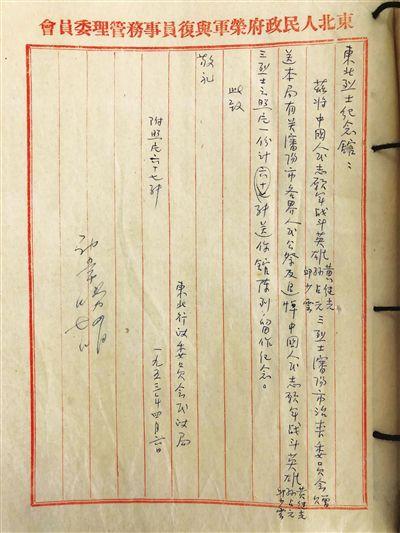 東北人民政府榮軍與復員事務管理委員會
東北烈士紀念館：
茲將中國人民志願軍战斗英雄黄继光孙占元邱少雲三烈士瀋陽市治喪委員会
送本局有关瀋陽市各界人民公祭及追悼中國人民志願軍战斗英雄黄继光孙占元邱少雲
三烈士之照片一份计六十七张送你館陈列，留作纪念。
此致
敬礼
附照片六十七张
東北行政委員会民政局
一九五三年四月六日